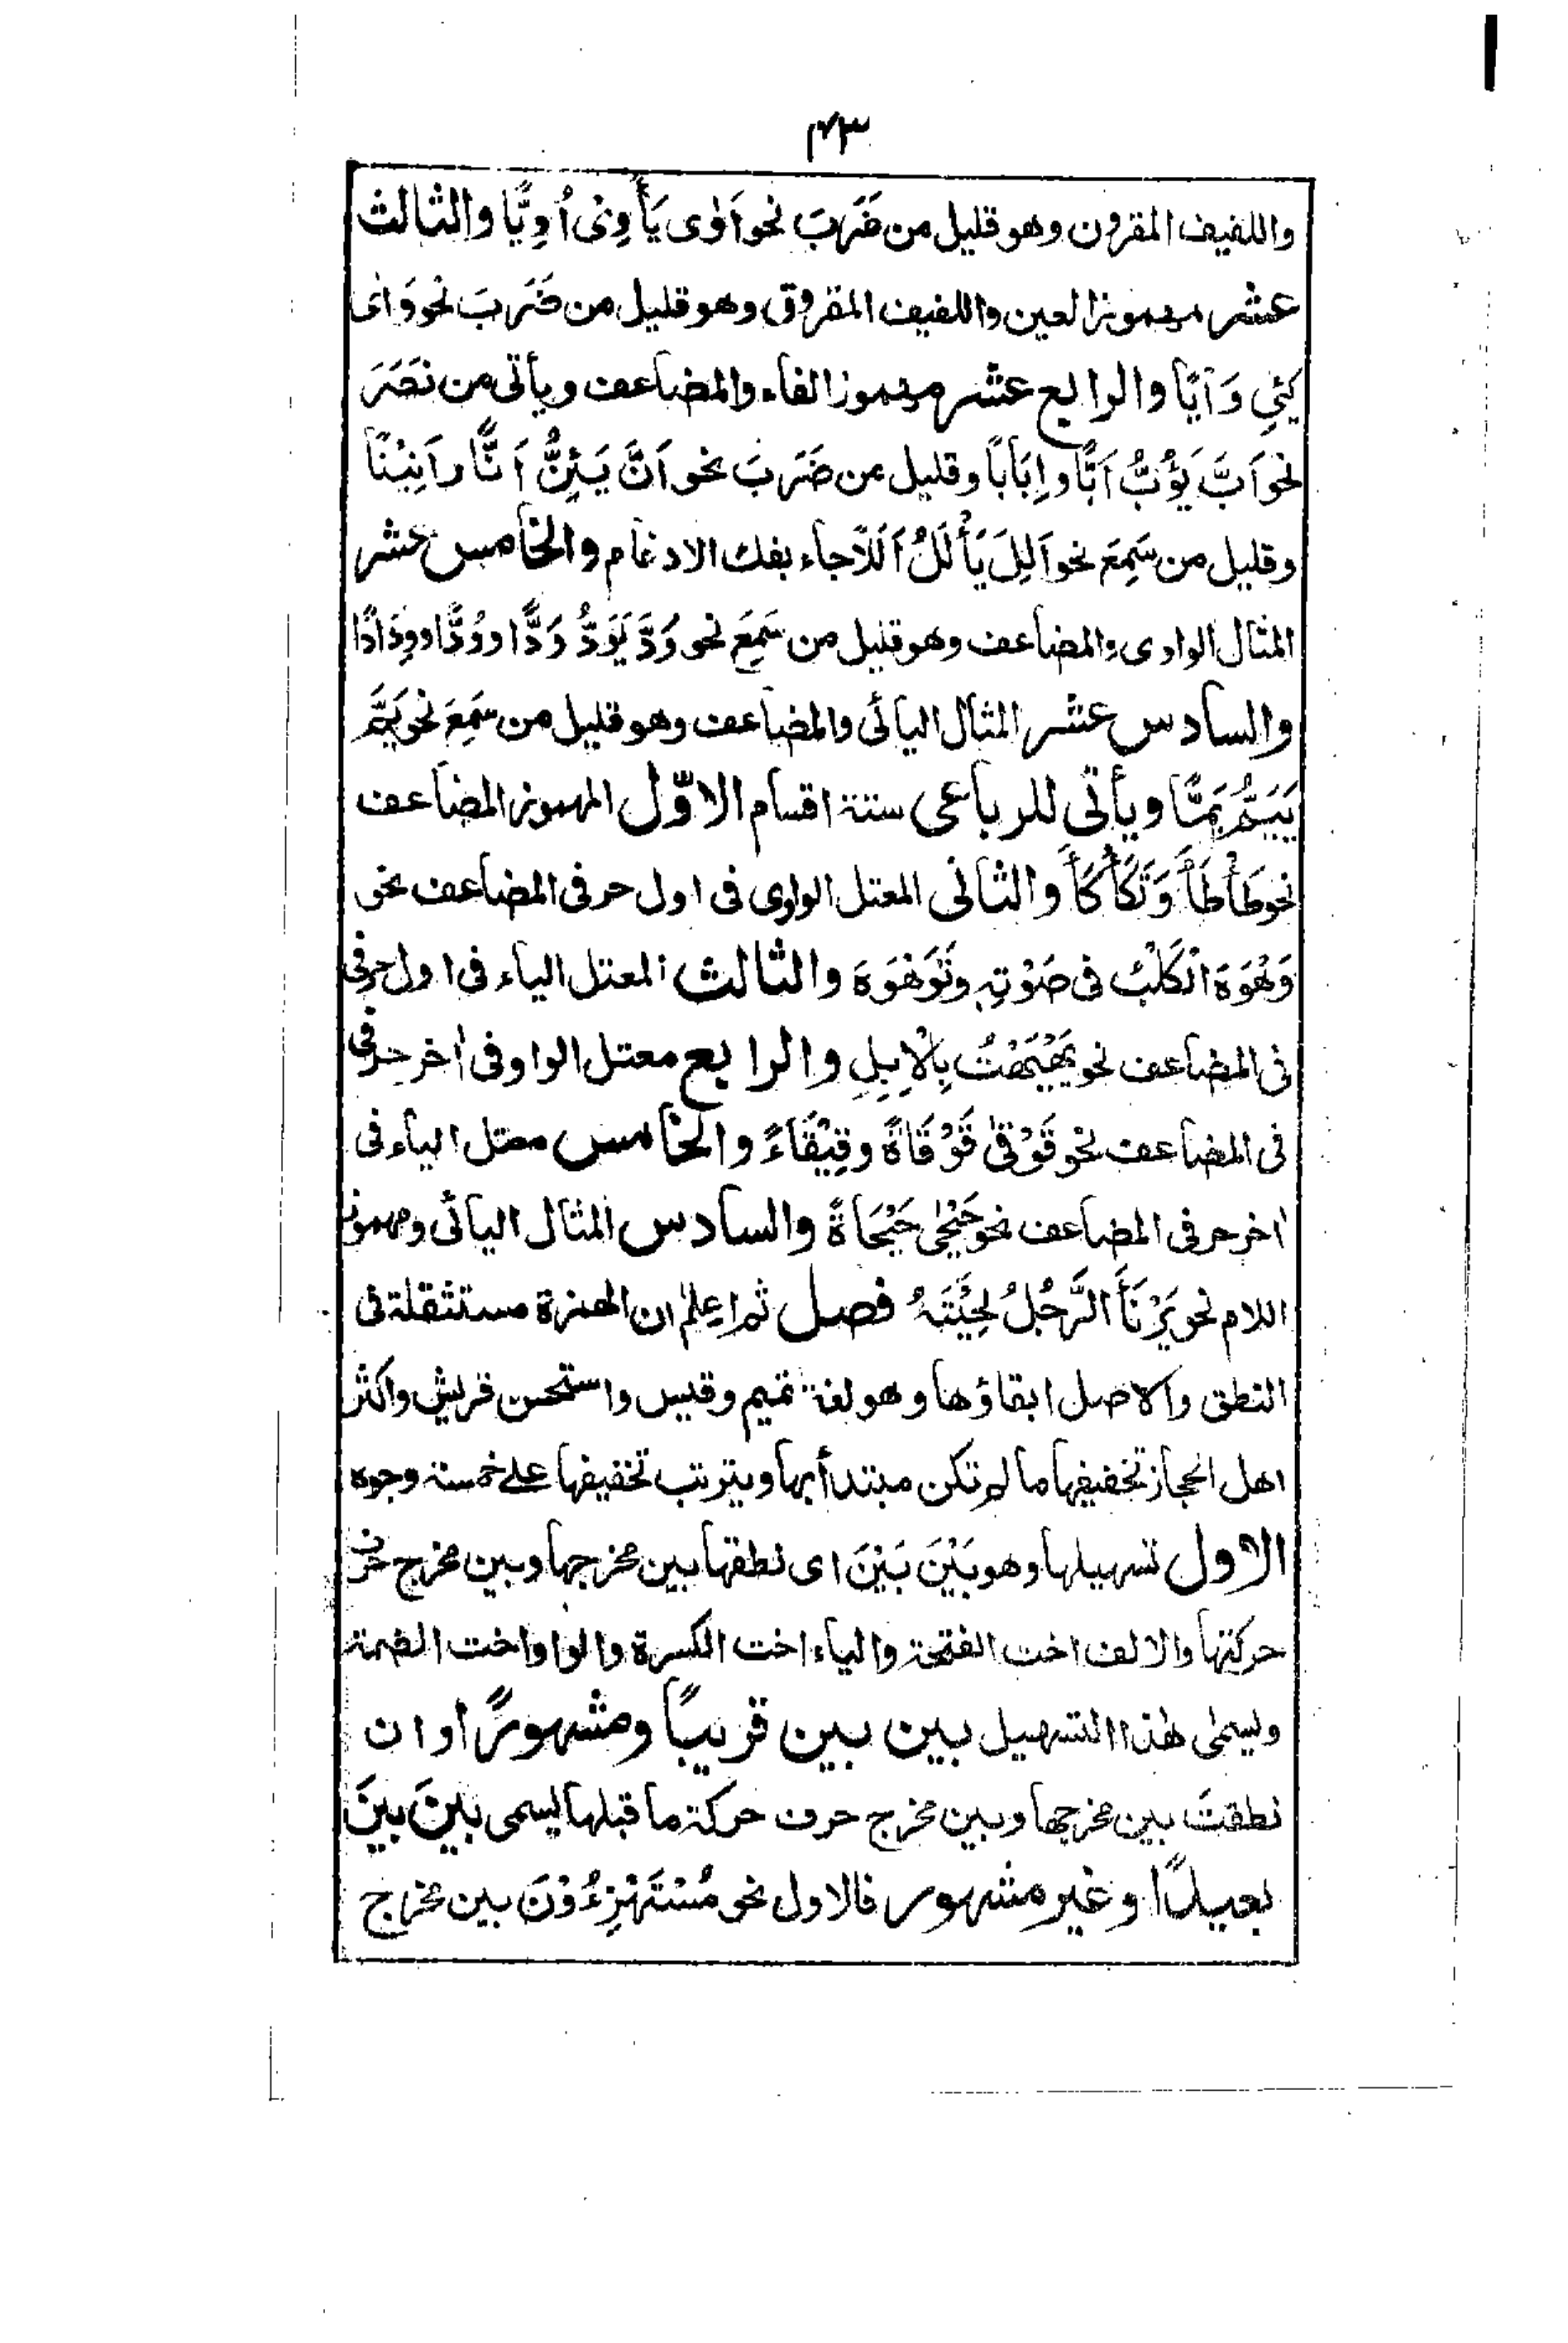 ٤٣
واللفيف المقرون وهو قليل من ضَرَبَ نحو اَوٰى يَأْوِىْ اُوِيًّا والثالث
عشر مهموز العين واللفيف المفروق وهو قليل من ضَرَبَ نحو وَاٰى
يَئِى وَأْيًا والرابع عشر مهموز الفاء والمضاعف ويأتى من نَصَرَ
نحو اَبَّ يَؤُبُّ اَبًّا و اِبَابًا وقليل من ضَرَبَ نحو اَنَّ يَئِنُّ اَنًّا و اَنِيْنًا
وقليل من سَمِعَ نحو اَلِلَ يَأْلَلُ اَلَلًا جاء بفك الادغام والخامس عشر
المثال الواوى والمضاعف وهو قليل من سَمِعَ نحو وَدَّ يَوَدُّ وَدًّا و وُدًّا و وِدَادًا
والسادس عشر المثال اليائى والمضاعف وهو قليل من سَمِعَ نحو يَمَّ
يَيَمُّ يَمًّا ويأتى للرباعى ستة اقسام الاوّل المهموز المضاعف
نحو طَأْطَأَ وَتَكَأْكَأَ والثانى المعتل الواوى فى اول حرفى المضاعف نحو
وَهْوَهَ الْكَلْبُ فى صَوْتِهٖ وتَوَهْوَهَ والثالث المعتل الياء فى اول حرفى
فى المضاعف نحو يَهْيَهْتُ بِالْاِبِلِ والرابع معتل الواو فى اٰخر حرفى
فى المضاعف نحو قَوْقٰى قَوْقَاةً وقِيْقَاءً والخامس معتل الياء فى
اٰخر حرفى المضاعف نحو حَيْحٰى حَيْحَاةً والسادس المثال اليائى ومهموز
اللام نحو يَرْنَأَ الرَّجُلُ لِحْيَتَهُ فصل ثم اعلم ان الهمزة مستثقلة فى
النطق والاصل ابقاؤها وهو لغة تميم وقيس واستحسن قريش واكثر
اهل الحجاز تخفيفها ما لم تكن مبتدأ بها ويترتب تخفيفها على خمسة وجوه
الاول تسهيلها وهو بَيْنَ بَيْنَ اى نطقها بين مخرجها وبين مخرج حرف
حركتها والالف اخت الفتحة والياء اخت الكسرة والواو اخت الضمة
ويسمٰى هٰذا التسهيل بين بين قريبًا ومشهورًا و ان
نطقتَ بين مخرجها وبين مخرج حرف حركة ما قبلها يسمى بينَ بينَ
بعيدًا وغير مشهور فالاول نحو مُسْتَهْزِءُوْنَ بين مخرج